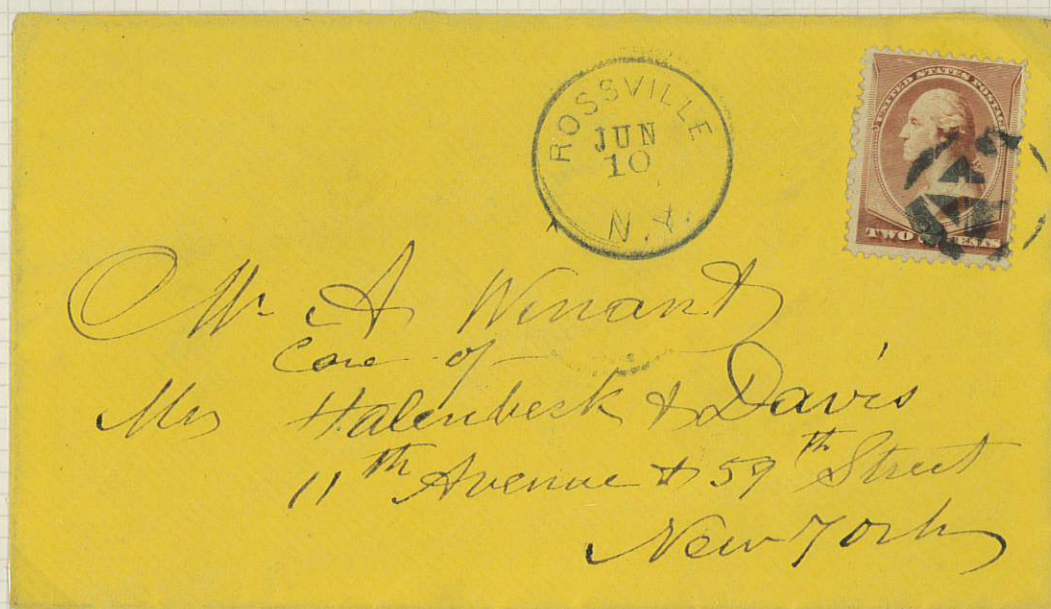 ROSSVILLE
JUN
10
N.Y.
UNITED STATES POSTAGE
TWO CENTS
Mr A Winant
Care of
Mrs Halenbeck & Davis
11th Avenue & 59th Street
New York